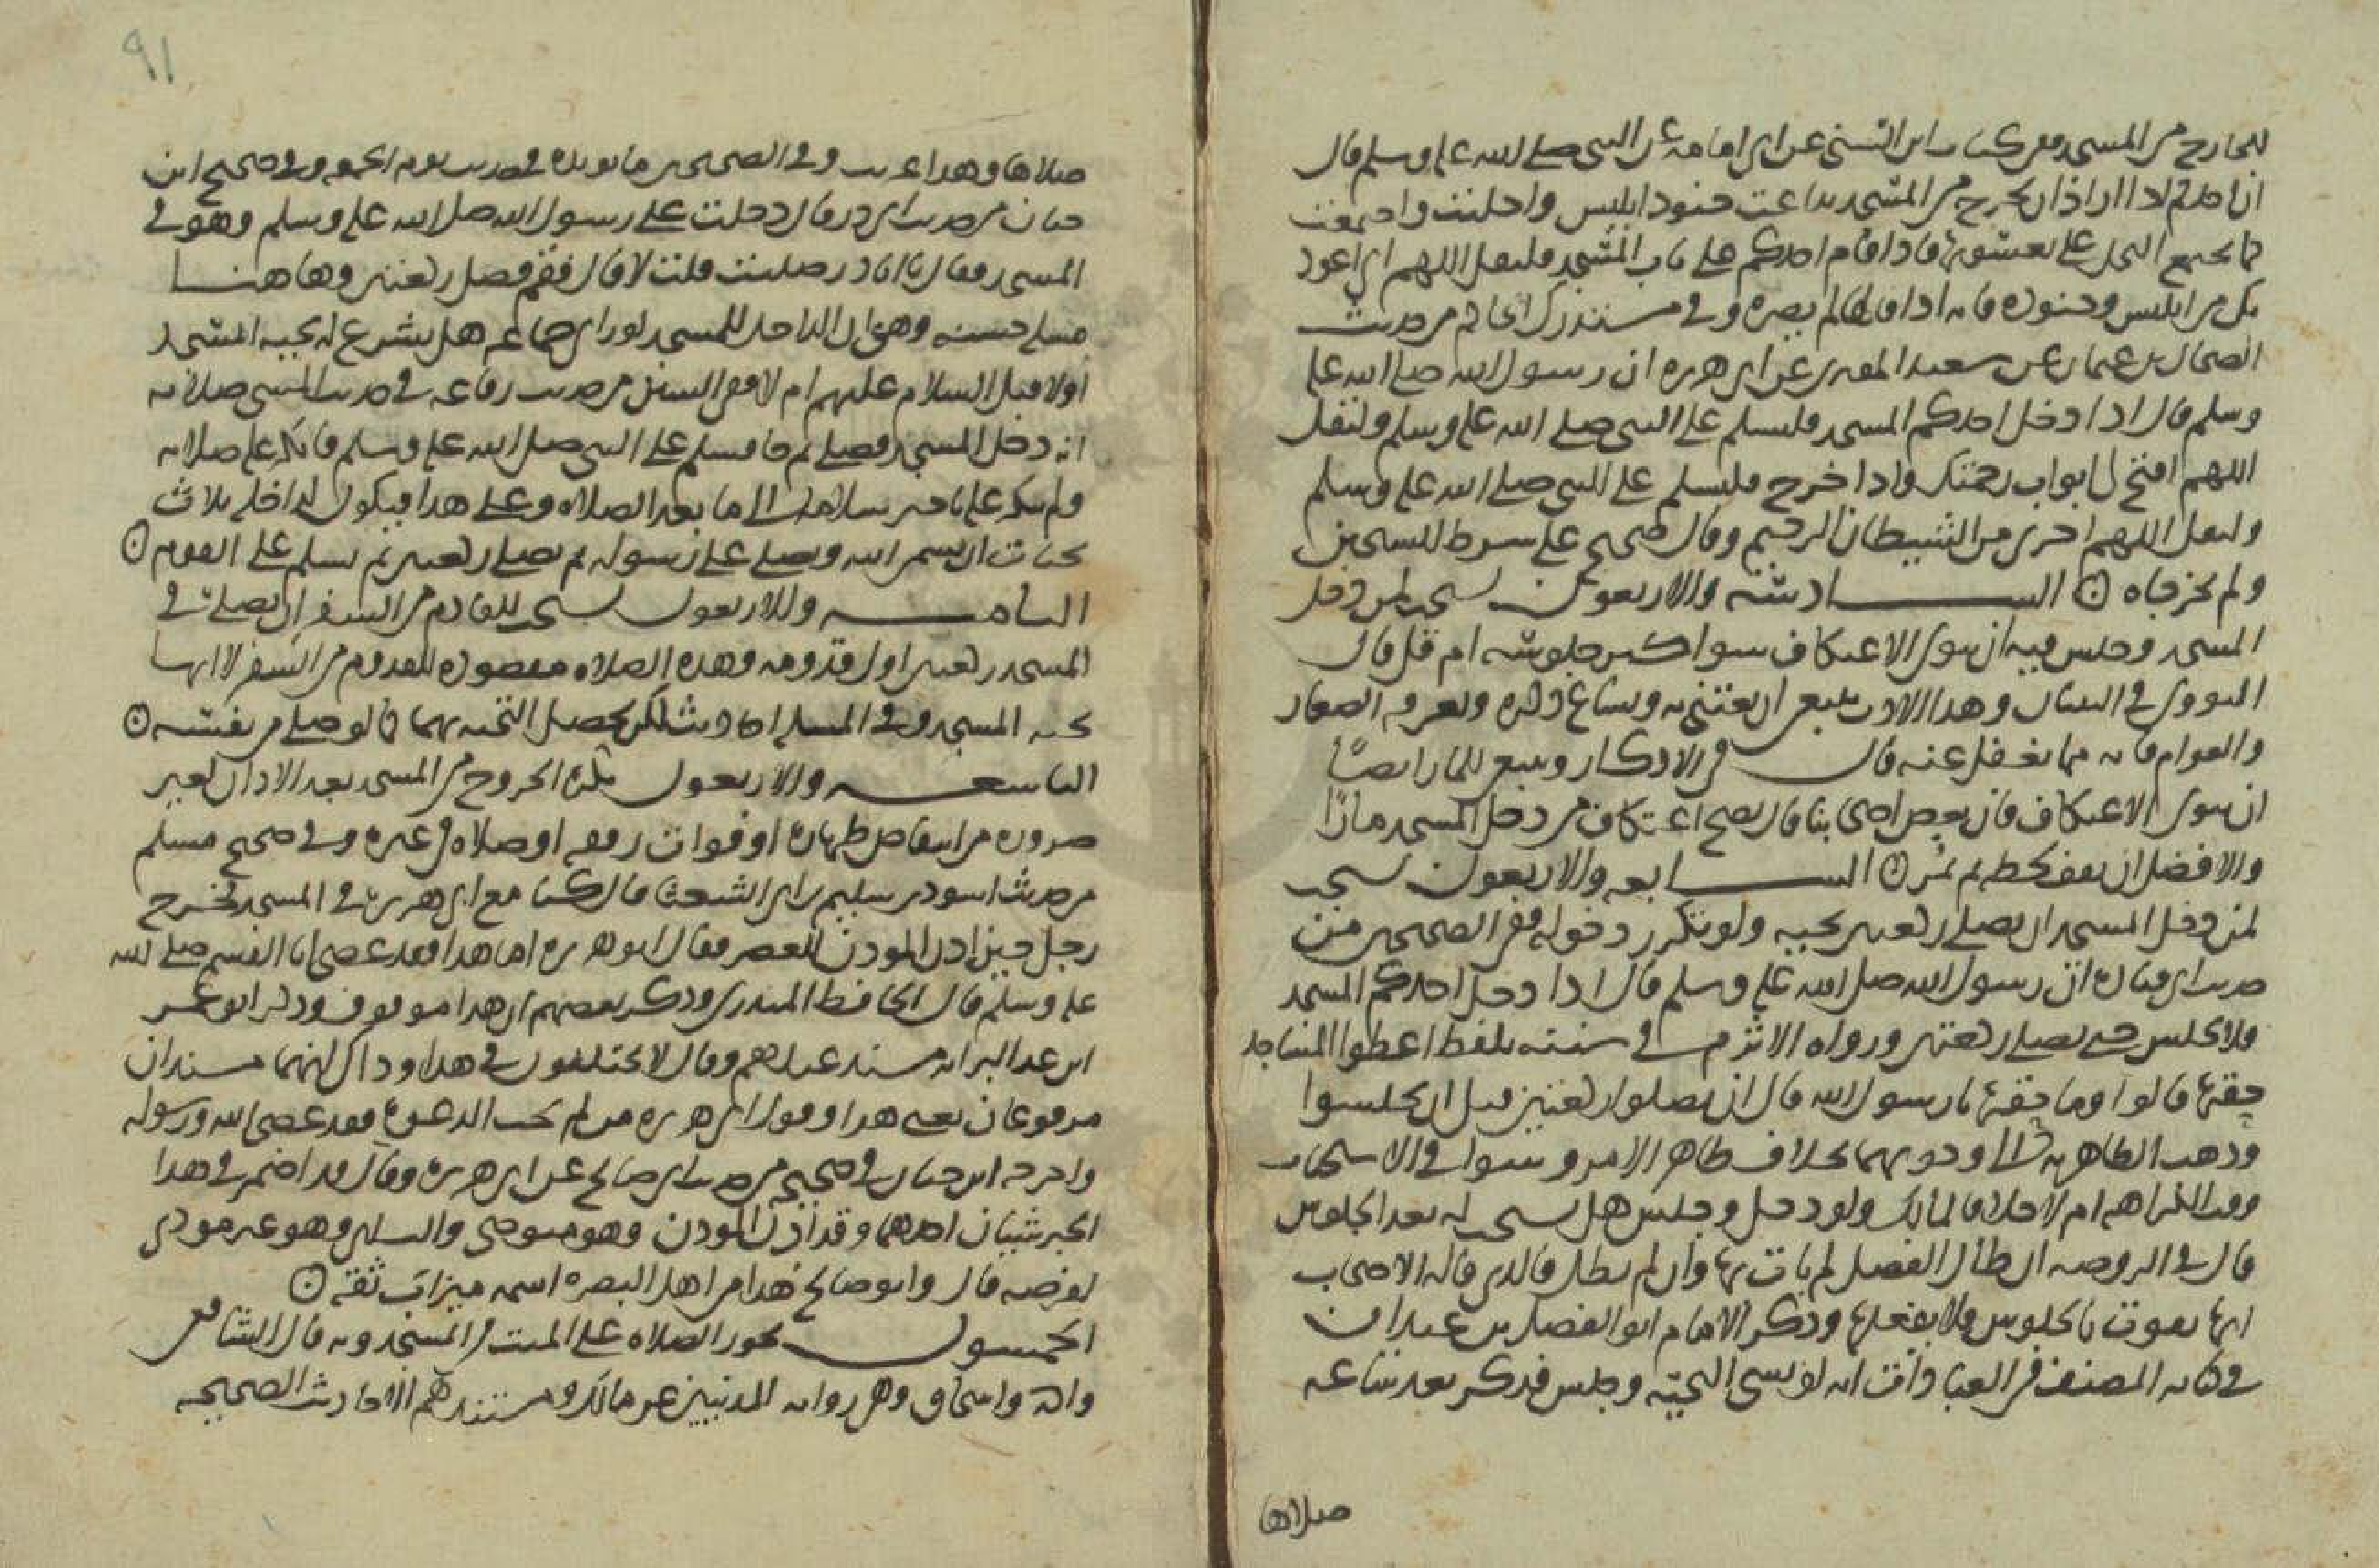 للخارج من المسجد ففي كتاب ابن السني عن ابي امامة عن النبي صلى الله عليه وسلم قال
ان احدكم اذا اراد ان يخرج من المسجد تداعت جنود ابليس واجلبت واجتمعت
كما يجتمع النحل على يعسوبها فاذا قام احدكم على باب المسجد فليقل اللهم اني اعوذ
بك من ابليس وجنوده فانه اذا قالها لم يضره وفي مستدرك الحاكم من حديث
الضحاك بن عثمان عن سعيد المقبري عن ابي هريرة ان رسول الله صلى الله عليه
وسلم قال اذا دخل احدكم المسجد فليسلم على النبي صلى الله عليه وسلم وليقل
اللهم افتح لي ابواب رحمتك واذا خرج فليسلم على النبي صلى الله عليه وسلم
وليقل اللهم اجرني من الشيطان الرجيم وقال صحيح على شرط الشيخين
ولم يخرجاه ۞ السادسة والاربعون يستحب لمن دخل
المسجد وجلس فيه ان ينوي الاعتكاف سوا كثر جلوسه ام قل قال
النووي في التبيان وهذا الادب ينبغي ان يعتنى به ويشاع ذكره ويعرفه الصغار
والعوام فانه مما يغفل عنه قال في الاذكار وينبغي للمار ايضا
ان ينوي الاعتكاف فان بعض اصحابنا قال يصح اعتكاف من دخل المسجد مارا
والافضل ان يقف لحظة ثم يمر ۞ السابعة والاربعون يستحب
لمن دخل المسجد ان يصلي ركعتين تحيته ولو تكرر دخوله ففي الصحيحين من
حديث ابي قتادة ان رسول الله صلى الله عليه وسلم قال اذا دخل احدكم المسجد
فلا يجلس حتى يصلي ركعتين ورواه الاثرم في سننه بلفظ اعطوا المساجد
حقها قالوا وما حقها يا رسول الله قال ان تصلوا ركعتين قبل ان تجلسوا
وذهب الظاهرية الى وجوبهما بخلاف ظاهر الامر وسوا في الاستحباب
وقت الكراهة ام لا خلافا لمالك ولو دخل وجلس هل يستحب له بعد الجلوس
قال في الروضة ان طال الفصل لم يات بها وان لم يطل فالذي قاله الاصحاب
انها تفوت بالجلوس فلا يفعلها وذكر الامام ابو الفضل بن عبدان
في كتابه المصنف في العبادات انه لو نسي التحية وجلس فذكر بعد ساعة
صلاها
٩١
صلاها وهذا غريب وفي الصحيحين ما يؤيده في حديث يوم الجمعة وفي صحيح ابن
حبان من حديث ابي ذر قال دخلت على رسول الله صلى الله عليه وسلم وهو في
المسجد فقال يا ابا ذر صليت قلت لا قال فقم فصل ركعتين وها هنا
مسلة حسنة وهي ان الداخل للمسجد لو راى جماعة هل يشرع له تحية المسجد
اولا قبل السلام عليهم ام لا ففي السنن من حديث رفاعة في حديث المسي صلاته
انه دخل المسجد فصلى ثم جا فسلم على النبي صلى الله عليه وسلم فانكر عليه صلاته
ولم ينكر عليه تاخير سلامه الى ما بعد الصلاة وعلى هذا فيكون لداخله ثلاث
تحيات ان يسمي الله ويصلي على رسوله ثم يصلي ركعتين ثم يسلم على القوم ۞
الثامنة والاربعون يستحب للقادم من السفر ان يصلي في
المسجد ركعتين اول قدومه وهذه الصلاة مقصودة للقدوم من السفر لا انها
تحية المسجد وفي المسلة احاديث لكن تحصل التحية بهما كما لو صلى فريضة ۞
التاسعة والاربعون يكره الخروج من المسجد بعد الاذان لغير
ضرورة من انتقاض طهارة او فوات رفقة او صلاة في غيره وفي صحيح مسلم
من حديث اسود بن سليم ابي الشعثا قال كنا مع ابي هريرة في المسجد فخرج
رجل حين اذن المؤذن للعصر فقال ابو هريرة اما هذا فقد عصى ابا القسم صلى الله
عليه وسلم قال الحافظ المنذري وذكر بعضهم ان هذا موقوف وذكر ابو عمر
ابن عبد البر انه مسند عندهم وقال لا يختلفون في هذا وذاك انهما مسندان
مرفوعان يعني هذا وقول ابي هريرة من لم يجب الدعوة فقد عصى الله ورسوله
واخرجه ابن حبان في صحيحه من حديث ابي صالح عن ابي هريرة وقال قد اضمر في هذا
الخبر شيئان احدهما وقد اذن المؤذن وهو متوضي والثاني وهو غير مودي
لفرضه قال وابو صالح هذا من اهل البصرة اسمه ميزان ثقة ۞
الخمسون يجوز الصلاة على الميت في المسجد وبه قال الشافعي
واحمد واسحاق وهي رواية المدنيين عن مالك ومستندهم الاحاديث الصحيحة